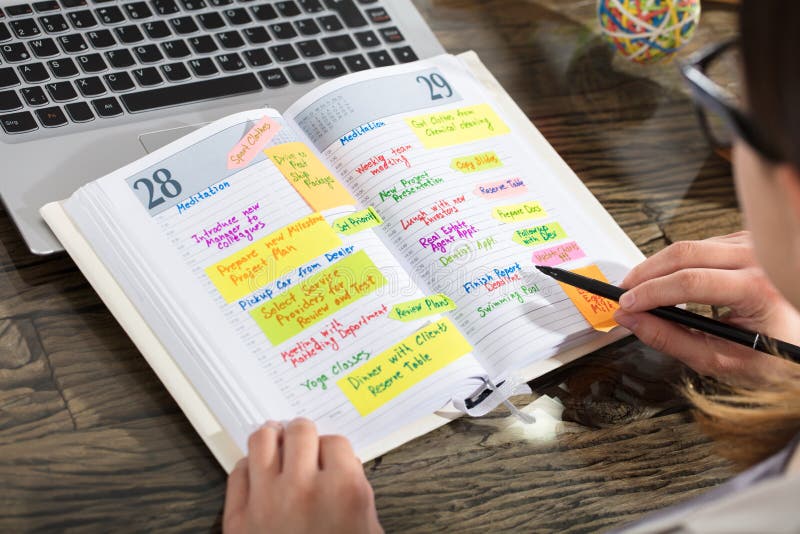 28
Meditation
Sport Clothes
Drive to
Post
Ship
Package
Introduce new
Manager to
colleagues
Set Priorit
Prepare new Milestone
Project Plan
Pickup Car from Dealer
Select Service
Providers for
Review and Test
Review Plans
Meeting with
Marketing Department
Yoga Classes
Dinner with Clients
Reserve Table
29
Meditation
Get Clothes from
Chemical cleaning
Weekly team
meeting
Copy Slides
New Project
Presentation
Reserve Table
Lunch with new
investors
Prepare Docs
Real Estate
Agent Appt.
Followup
with Dev
Dentist Appt.
Finish Report
Deadline
Swimming Pool